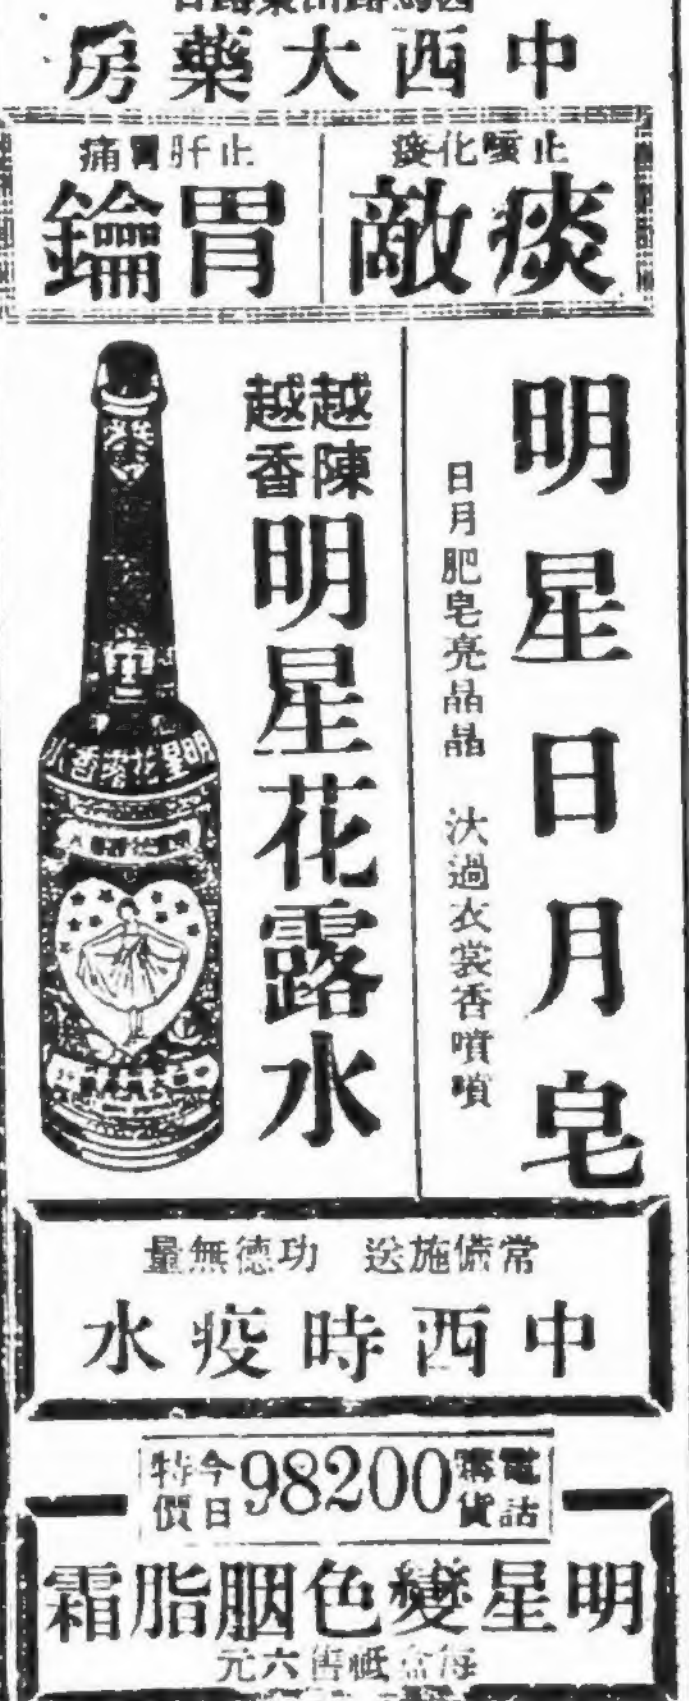 中西大藥房
止咳化痰
痰敵
止肝胃痛
胃鑰
明星日月皂
日月肥皂亮晶晶 汏過衣裳香噴噴
越陳
越香
明星花露水
明星花露香水
常備施送 功德無量
中西時疫水
電話
購貨
98200
今日
特價
明星變色胭脂霜
每盒祗售六元